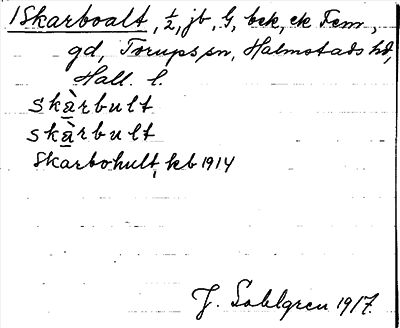 1 Skarboalt, ½, jb, G, bck, ck Fem,
gd, Torups sn, Halmstads hd,
Hall. l.
skàrbult
skàrbult
Skarbohult, kb 1914
J. Sahlgren 1917.